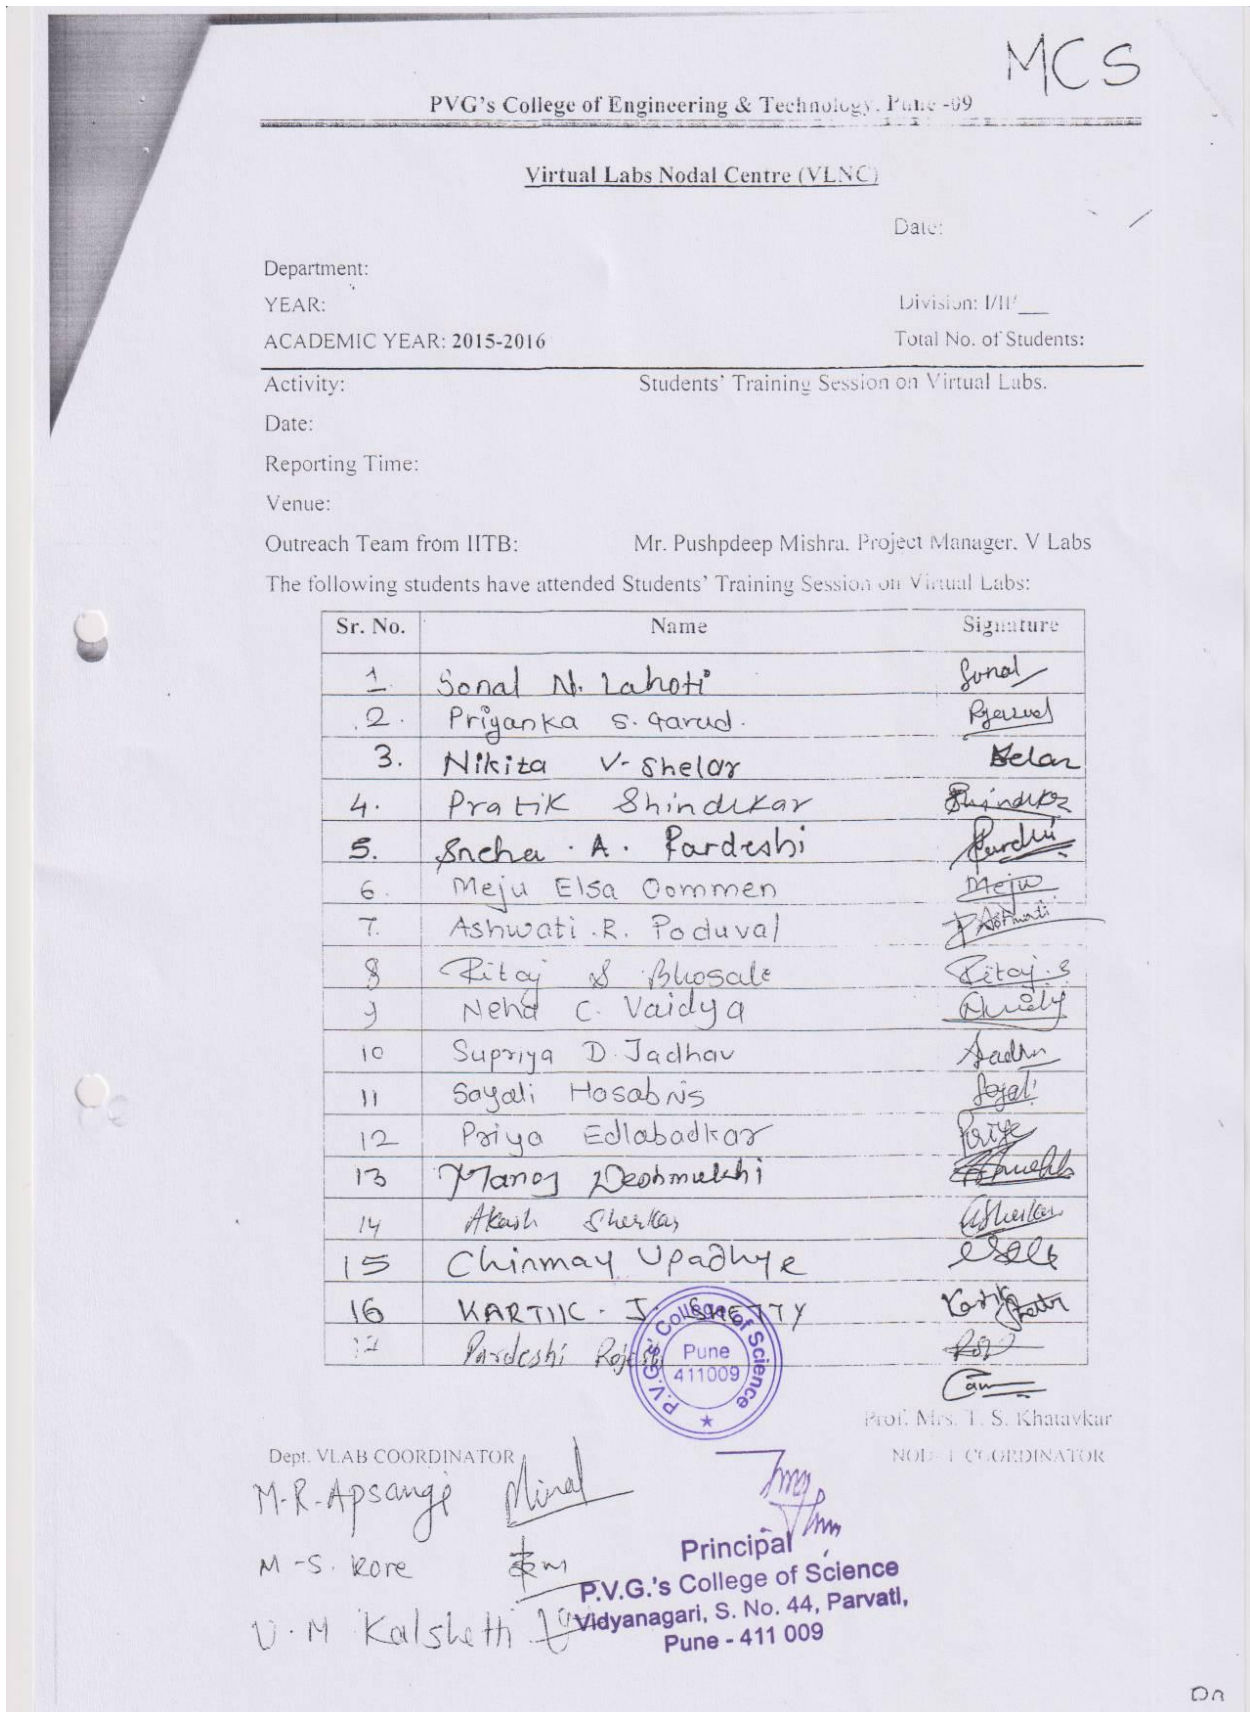 MCS
PVG's College of Engineering & Technology, Pune -09
Virtual Labs Nodal Centre (VLNC)
Date:
Department:
YEAR: Division: I/II/__
ACADEMIC YEAR: 2015-2016 Total No. of Students:
Activity: Students' Training Session on Virtual Labs.
Date:
Reporting Time:
Venue:
Outreach Team from IITB: Mr. Pushpdeep Mishra, Project Manager, V Labs
The following students have attended Students' Training Session on Virtual Labs:
Sr. No. Name Signature
1. Sonal N. Lahoti Sonal
2. Priyanka S. Garud.
3. Nikita V. Shelar
4. Pratik Shindikar
5. Sneha . A. Pardeshi
6. Meju Elsa Oommen Meju
7. Ashwati .R. Poduval Ashwati
8 Ritaj S Bhosale Ritaj.S
9 Neha C. Vaidya
10 Supriya D. Jadhav
11 Sayali Hasabnis
12 Priya Edlabadkar Priya
13 Manoj Deshmukhi
14 Akash Sherkar
15 Chinmay Upadhye
16 KARTIK . J. SHETTY
17 Pardeshi
P.V.G.'s College of Science
Pune
411009
Prof. Mrs. T. S. Khatavkar
Dept. VLAB COORDINATOR NODAL COORDINATOR
M.R.Apsange Minal
M.S. Kore
V.M Kalshetti
Principal
P.V.G.'s College of Science
Vidyanagari, S. No. 44, Parvati,
Pune - 411 009